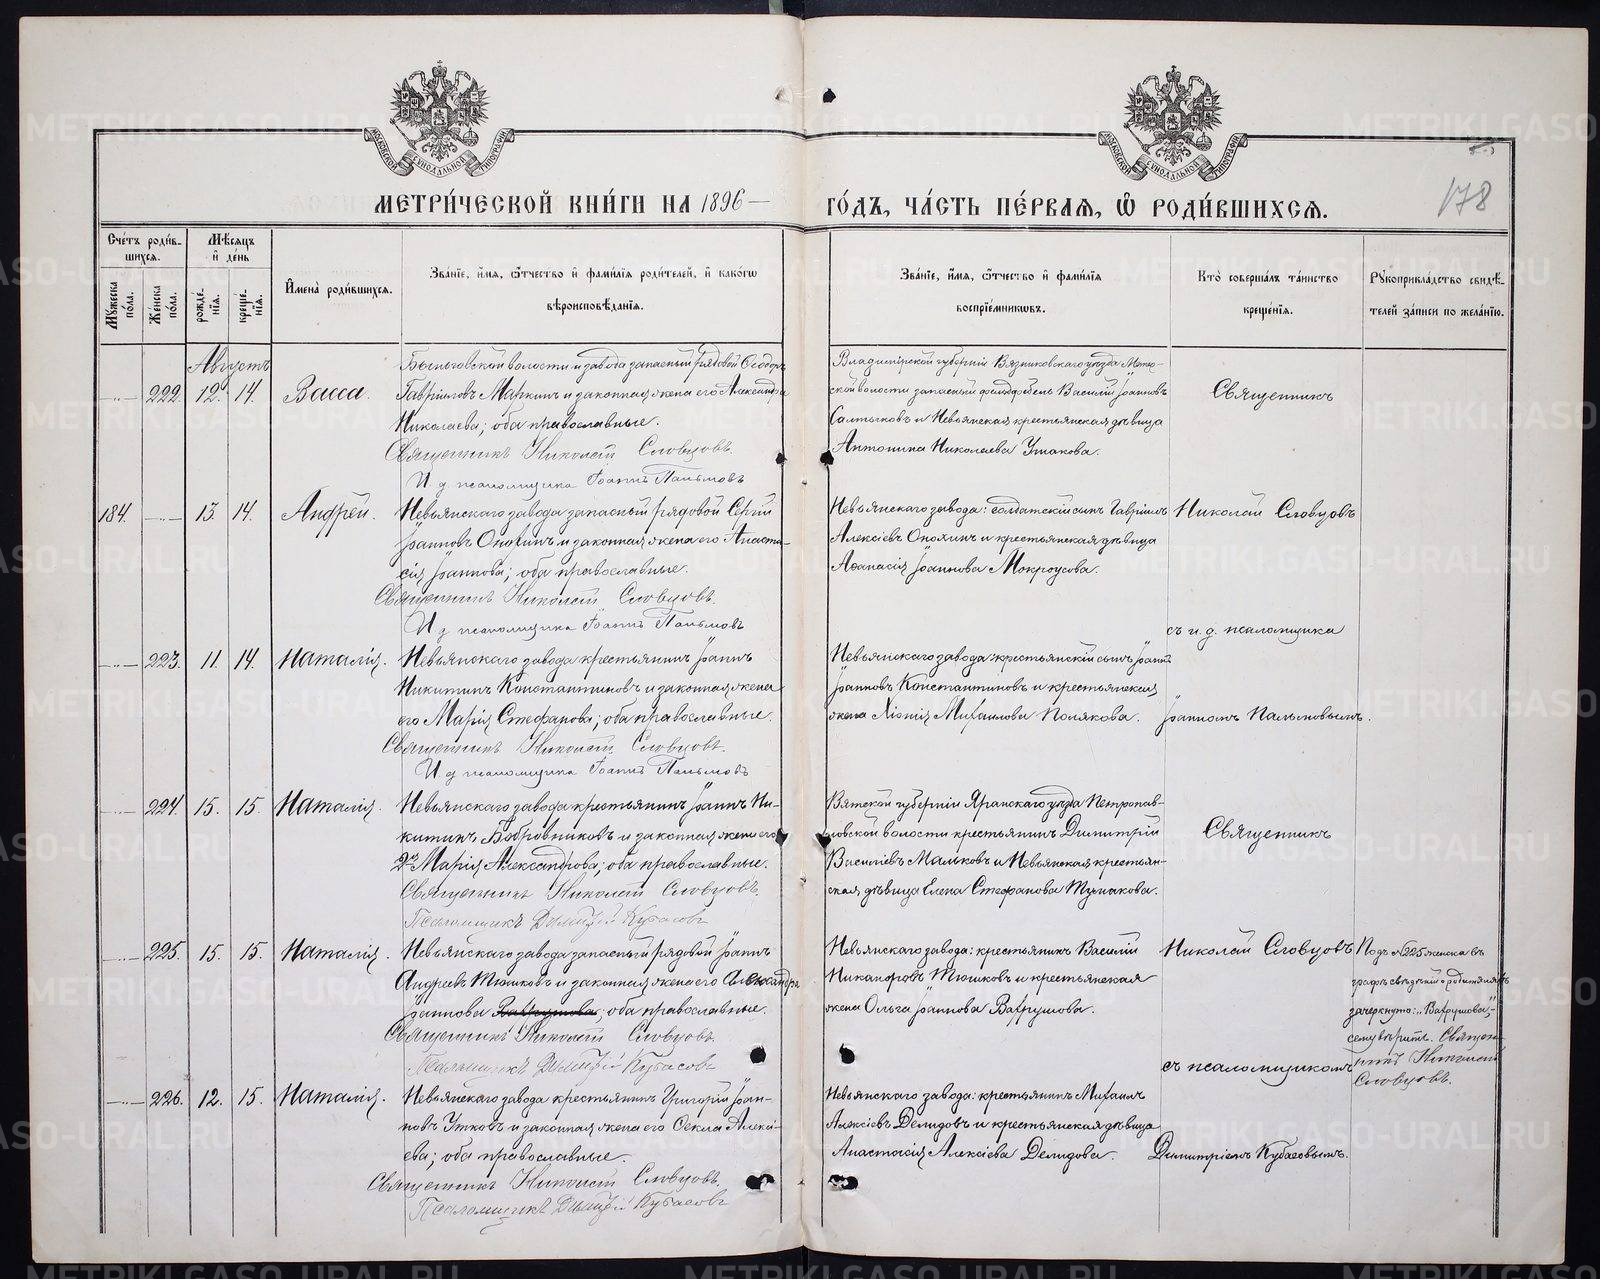 МЕТРИ́ЧЕСКОЙ КНИ́ГИ НА 1896 — ГО́ДЪ, ЧА́СТЬ ПЕ́РВАЯ, Ѡ РОДИ́ВШИХСЯ.
178
Сче́тъ роди́в-
шихся.
Мꙋ́жеска по́ла.
Же́нска по́ла.
Мѣ́сяцъ и҆ де́нь
рожде́-
нїя.
креще́-
нїя.
И҆мена̀ роди́вшихся.
Зва́нїе, и҆́мя, ѻ҆́тчество и҆ фами́лїя роди́телей, и҆ како́гѡ
вѣроисповѣ́данїя.
Зва́нїе, и҆́мя, ѻ҆́тчество и҆ фами́лїя
воспрїе́мникѡвъ.
Кто̀ соверша́лъ та́инство
креще́нїя.
Рꙋкоприкла́дство свидѣ́-
телей за́писи по жела́нїю.
Августъ
222. 12. 14. Васса.
Быньговской волости и завода запасный рядовой Ѳеодоръ
Гаврииловъ Маркинъ и законная жена его Александра
Николаева; оба православные.
Священникъ Николай Словцовъ.
И. д. псаломщика Іоаннъ Пальмовъ
Владимірской губерніи Вязниковскаго уѣзда
ской волости запасный фельдфебель Василій Іоанновъ
Салтыковъ и Невьянская крестьянская дѣвица
Антонина Николаева Ушакова.
Священникъ
184. 13. 14. Андрей.
Невьянскаго завода запасный рядовой Сергій
Іоанновъ Онохинъ и законная жена его Анаста-
сія Іоаннова; оба православные.
Священникъ Николай Словцовъ.
И. д. псаломщика Іоаннъ Пальмовъ
Невьянскаго завода: солдатскій сынъ Гавріилъ
Алексіевъ Онохинъ и крестьянская дѣвица
Аѳанасія Іоаннова Мокроусова.
Николай Словцовъ
съ и. д. псаломщика
223. 11. 14. Наталія.
Невьянскаго завода крестьянинъ Іоаннъ
Никитинъ Константиновъ и законная жена
его Марія Стефанова; оба православные.
Священникъ Николай Словцовъ.
И. д. псаломщика Іоаннъ Пальмовъ
Невьянскаго завода: крестьянскій сынъ Іоаннъ
Іоанновъ Константиновъ и крестьянская
жена Хіонія Михаилова Полякова.
Іоанномъ Пальмовымъ.
224. 15. 15. Наталія.
Невьянскаго завода крестьянинъ Іоаннъ Ни-
китинъ Бобровниковъ и законная жена его
Марія Александрова; оба православные.
Священникъ Николай Словцовъ.
Псаломщикъ Димитрій Кубасовъ
Вятской губерніи Яранскаго уѣзда Петропав-
ловской волости крестьянинъ Димитрій
Василіевъ Мальковъ и Невьянская крестьян-
ская дѣвица Елена Стефанова Тупакова.
Священникъ
225. 15. 15. Наталія.
Невьянскаго завода запасный рядовой Іоаннъ
Андреевъ Тюшковъ и законная жена его Александра
Іоаннова Вахрушова; оба православные.
Священникъ Николай Словцовъ.
Псаломщикъ Димитрій Кубасовъ
Невьянскаго завода: крестьянинъ Василій
Никаноровъ Тюшковъ и крестьянская
жена Ольга Іоаннова Вахрушова.
Николай Словцовъ
съ псаломщикомъ
Подъ №225 женска въ
графѣ свѣдѣній о родителяхъ
зачеркнуто: „Вахрушова",
сему вѣрить. Священ-
никъ Николай
Словцовъ.
226. 12. 15. Наталія.
Невьянскаго завода крестьянинъ Григорій Іоан-
новъ Утковъ и законная жена его Ѳекла Алексі-
ева; оба православные.
Священникъ Николай Словцовъ.
Псаломщикъ Димитрій Кубасовъ
Невьянскаго завода: крестьянинъ Михаилъ
Алексіевъ Демидовъ и крестьянская дѣвица
Анастасія Алексіева Демидова.
Димитріемъ Кубасовымъ.
METRIKI.GASO-URAL.RU